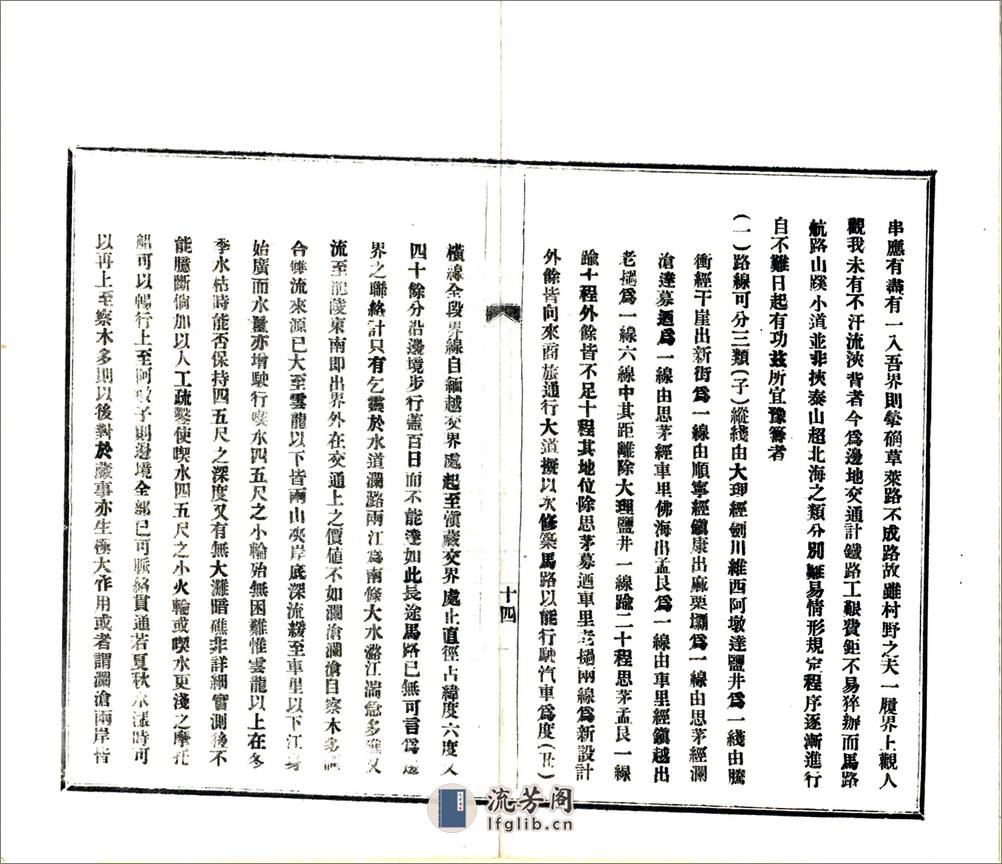 串應有盡有一入吾界則犖确草萊路不成路故雖村野之夫一履界上觀人
觀我未有不汗流浹背者今爲邊地交通計鐵路工艱費鉅不易猝辦而馬路
航路山蹊小道並非挾泰山超北海之類分別難易情形規定程序逐漸進行
自不難日起有功茲所宜豫籌者
(一)路線可分三類(子)縱綫由大理經劍川維西阿墩達鹽井爲一綫由騰
衝經干崖出新街爲一線由順寧經鎭康出麻栗壩爲一線由思茅經瀾
滄達募迺爲一線由思茅經車里佛海出孟艮爲一線由車里經鎭越出
老撾爲一線六線中其距離除大理鹽井一線踰二十程思茅孟艮一線
踰十程外餘皆不足十程其地位除思茅募迺車里老撾兩線爲新設計
外餘皆向來商旅通行大道擬以次修築馬路以能行駛汽車爲度(丑)
十四
橫線全段界線自緬越交界處起至滇藏交界處止直徑占緯度六度又
四十餘分沿邊境步行蓋百日而不能達如此長途馬路已無可言爲邊
界之聯絡計只有乞靈於水道瀾路兩江爲南條大水潞江湍急多灘又
流至龍陵東南即出界外在交通上之價値不如瀾滄瀾滄自察木多
合雙流來源已大至雲龍以下皆兩山夾岸底深流緩至車里以下江身
始廣而水量亦增駛行喫水四五尺之小輪殆無困難惟雲龍以上在冬
季水枯時能否保持四五尺之深度又有無大灘暗礁非詳細實測後不
能臆斷倘加以人工疏鑿使喫水四五尺之小火輪或喫水更淺之摩托
船可以暢行上至阿墩子則邊境全部已可脈絡貫通若夏秋水漲時可
以再上至察木多則以後對於藏事亦生極大作用或者謂瀾滄兩岸皆
流芳阁
lfglib.cn